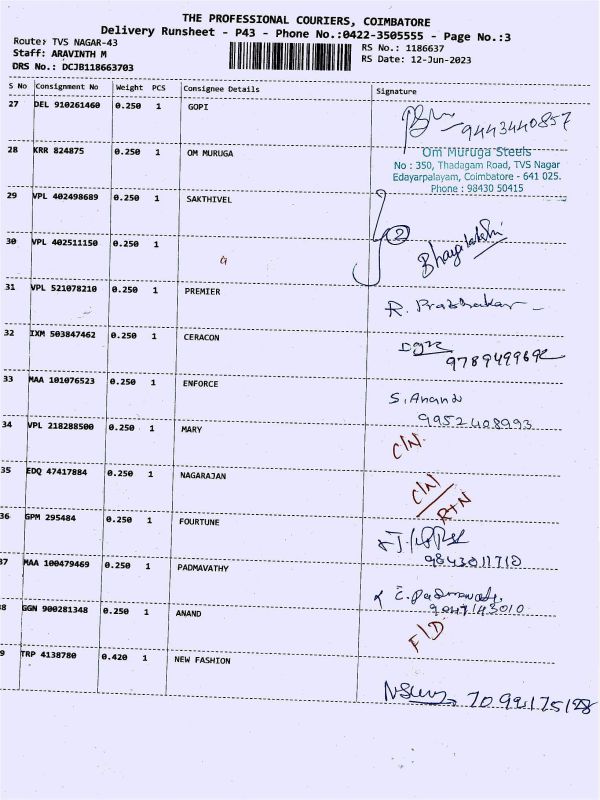 THE PROFESSIONAL COURIERS, COIMBATORE
Delivery Runsheet - P43 - Phone No.:0422-3505555 - Page No.:3
Route: TVS NAGAR-43
RS No.: 1186637
Staff: ARAVINTH M
RS Date: 12-Jun-2023
DRS No.: DCJB118663703
S No Consignment No Weight PCS Consignee Details Signature
27 DEL 910261460 0.250 1 GOPI 9443440857
28 KRR 824875 0.250 1 OM MURUGA
Om Muruga Steels
No : 350, Thadagam Road, TVS Nagar
Edayarpalayam, Coimbatore - 641 025.
Phone : 98430 50415
29 VPL 402498689 0.250 1 SAKTHIVEL
2
30 VPL 402511150 0.250 1
31 VPL 521078210 0.250 1 PREMIER R. Prabhakar
32 IXM 503847462 0.250 1 CERACON
33 MAA 101076523 0.250 1 ENFORCE S. Anand
9952408993
34 VPL 218288500 0.250 1 MARY C/N
35 EDQ 47417884 0.250 1 NAGARAJAN C/N
RTN
36 GPM 295484 0.250 1 FOURTUNE
9843011710
37 MAA 100479469 0.250 1 PADMAVATHY
38 GGN 900281348 0.250 1 ANAND F/D
39 TRP 4138780 0.420 1 NEW FASHION